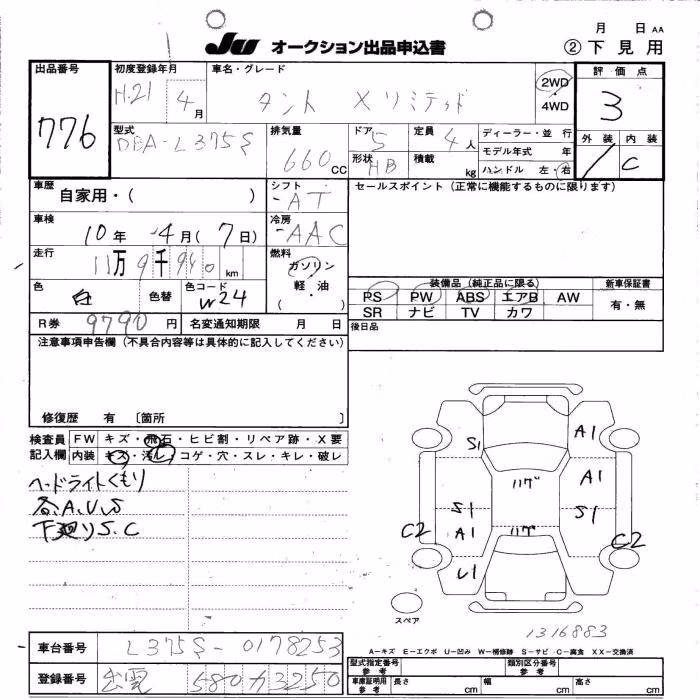 月 日 AA
JU オークション出品申込書
②下見用
出品番号
776
初度登録年月
H.21 4月
車名・グレード
タント Xリミテッド
2WD
・
4WD
評価点
3
外装 内装
C
型式
DBA-L375S
排気量
660cc
ドア
5
形状
HB
定員
4人
積載
kg
ディーラー・並 行
モデル年式 年
ハンドル 左・右
車歴
自家用・( )
シフト
AT
セールスポイント(正常に機能するものに限ります)
車検
10年 4月(7日)
冷房
AAC
走行
11万9千940km
燃料
ガソリン
・
軽・油
( )
色
白
色替
色コード
W24
装備品(純正品に限る)
新車保証書
PS PW ABS エアB AW
SR ナビ TV カワ
有・無
R券
9790円
名変通知期限 月 日
後日品
注意事項申告欄(不具合内容等は具体的に記入してください)
修復歴 有 〔箇所 〕
検査員
記入欄
FW キズ・飛石・ヒビ割・リペア跡・X要
内装 キズ・汚レ・コゲ・穴・スレ・キレ・破レ
ヘッドライトくもり
各A.U.S
下廻りS.C
S1
A1
A1
ハゲ
S1
S1
A1
ハゲ
C2
C2
U1
スペア
1316883
A-キズ E-エクボ U-凹み W-補修跡 S-サビ C-腐食 XX-交換済
車台番号
L375S-0178253
登録番号
出雲 580 カ 3250
型式指定番号
参考
類別区分番号
参考
車庫証明用
参考
長さ cm
幅 cm
高さ cm